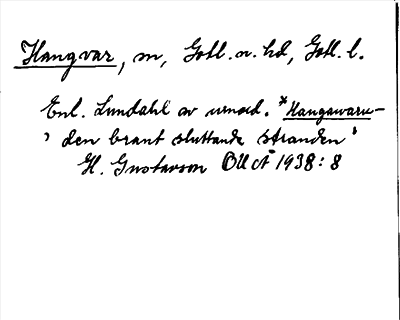 Hangvar, sn, Gotl. n. hd, Gotl. l.
Enl. Lundahl av urnord. *Hangawaru-
' den brant sluttande stranden '
H. Gustavson 1938: 8